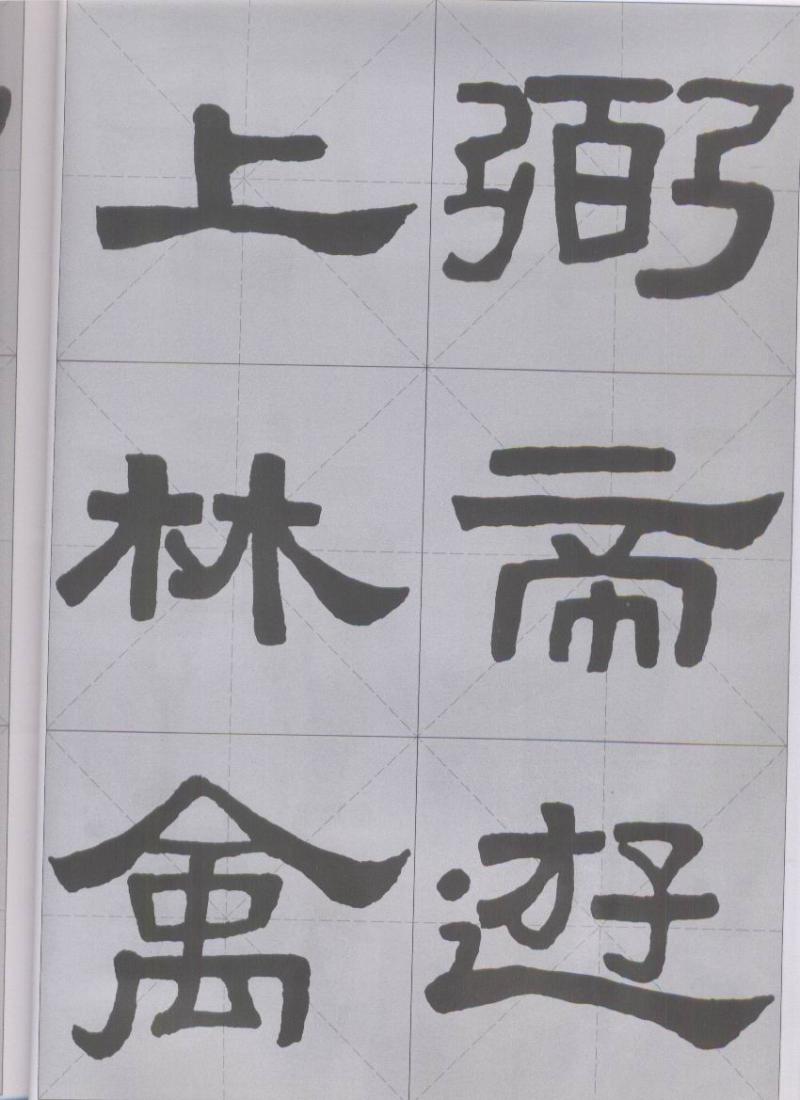 弼帝遊
上林禽